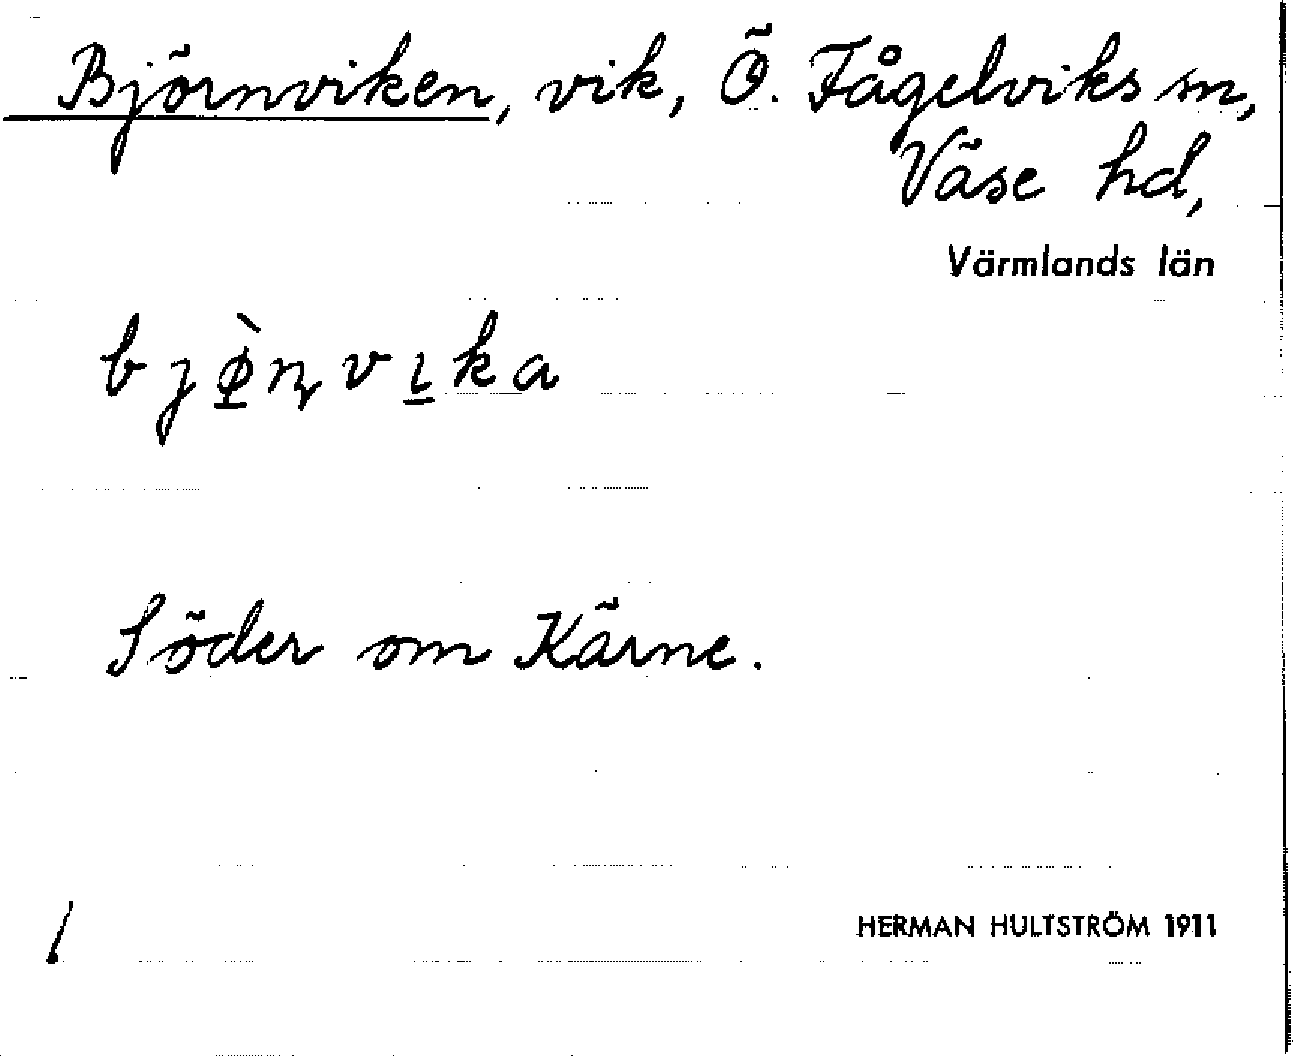 Björnviken, vik, Ö. Fågelviks sn,
Väse hd,
Värmlands län
bjø̠̀ɳvɩ̠ka
Söder om Kärne.
HERMAN HULTSTRÖM 1911